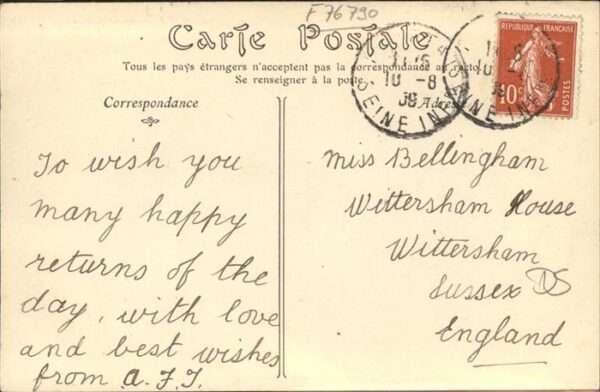 F 76790
Carte Postale
Tous les pays étrangers n'acceptent pas la correspondance au recto
Se renseigner à la poste
Correspondance
Adres
To wish you
many happy
returns of the
day, with love
and best wishes
from A.F.J.
Miss Bellingham
Wittersham House
Wittersham
Sussex DS
England
REPUBLIQUE FRANÇAISE
10c
POSTES
10-8
SEINE INF